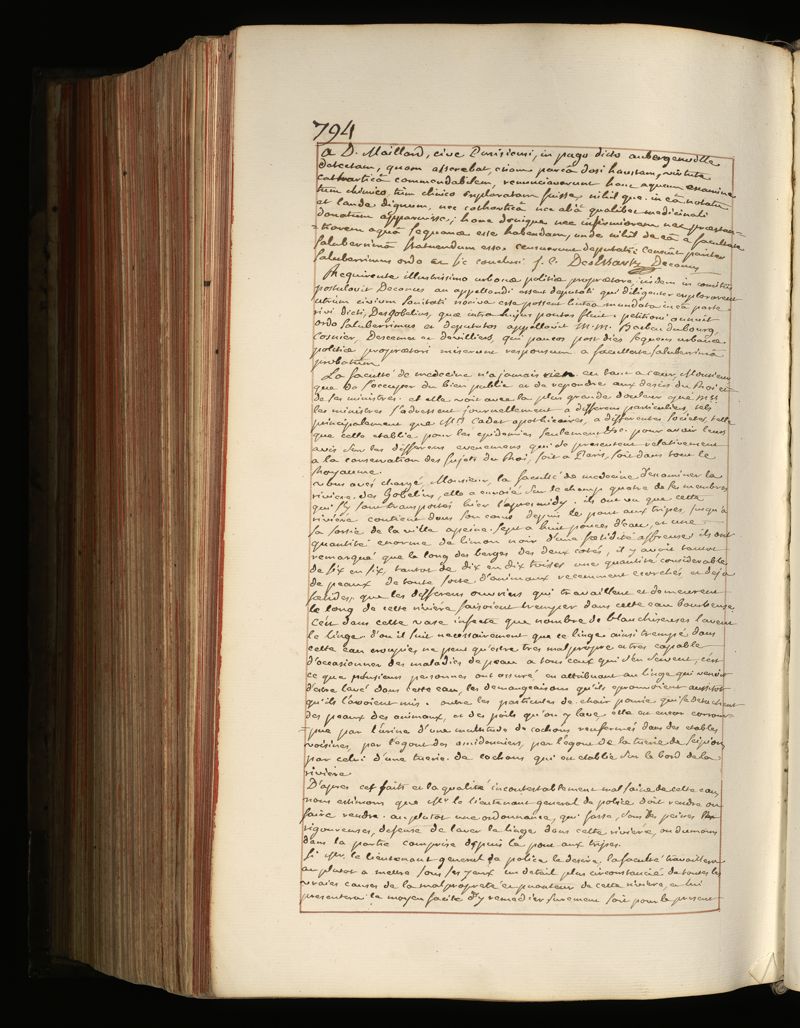 794
a D. Maillard, cive Parisiensi, in pago dicto aubergenville
detectam, quam asserebat, etiam parcâ dosi haustam, virtute
cathartica commendabilem, renunciaverunt hanc aquam examine
tum chimico, tum clinico exploratam fuisse, nihil que in eâ notatu
et laude dignum, nec cathartica nec aliâ qualibet medicinali
donatum apparuisse; hanc denique nec infirmiorem nec præstan=
=tiorem aquâ sequanæ esse habendam, unde nihil de eâ a facultate
saluberrimâ statuendum esse censuerunt deputati: censuit pariter
saluberrimus ordo et sic conclusi J. C. DesEssartz Decanus
Requirente illustrissimo urbanæ politiæ proprætore, iisdem in comitiis
postulavit Decanus an appellandi essent deputati qui diligenter explorarent
utrum civium sanitati nociva esse possent lintea mundata in eâ parte
rivi dicti, Des gobelins, quæ intra hujus pontes fluit. petitioni annuit
ordo saluberrimus et deputatos appellavit M. M. Barbeu dubourg,
Cosnier, Descemet et devilliers, qui paucos post dies sequens urbanæ
politiæ proprætori miserunt responsum a facultate saluberrimâ
probatum.
La faculté de medecine n'a jamais rien eu tant a cœur, Monsieur
que de s'occuper du bien public et de repondre aux desirs du Roi et
de ses ministres. et elle voit avec la plus grande douleur que MM.
les ministres s'adressent journellement a differens particuliers, tels
principalement que Mr Cadet apothicaires, a differentes societes, telle
que celle etablie pour les epidemies seulement &c. pour avoir leurs
avis sur les differens evenemens qui se presentent relativement
a la conservation des sujets du Roi, soit a Paris, soit dans tout le
Royaume.
vous avés chargé, Monsieur, la faculté de medecine d'examiner la
riviere des Gobelins, elle a envoié sur le champ quatre de ses membres
qui s'y sont transportés hier l'apresmidy. ils ont vu que cette
riviere contient dans son canal depuis le pont aux tripes jusqu'a
sa sortie de la ville a peine sept a huit pouces d'eau, et une
quantité enorme de limon noir d'une fœtidité affreuse. ils ont
remarqué que le long des berges des deux cotés, il y avoit tantot
de six en six, tantot de dix en dix toises une quantité considerable
de peaux de toute sorte d'animaux recemment ecorchés et deja
fœtides, que les differens ouvriers qui travaillent et demeurent
le long de cette riviere faisoient tremper dans cette eau bourbeuse.
C'est dans cette vase infecte que nombre de blanchisseuses lavent
le linge. d'ou il suit necessairement que ce linge ainsi trempé dans
cette eau croupies ne peut qu'estre tres malpropre et tres capable
d'occasionner des maladies de peau a tous ceux qui s'en servent, c'est
ce que plusieurs personnes ont assuré en attribuant au linge qui venoit
d'etre lavé dans cette eau, les demangeaisons qu'ils eprouvoient aussitot
qu'ils l'avoient mis. outre les particules de chair pourrie qui se detachent
des peaux des animaux, et des poils qu'on y lave elle est encor corrom=
=pue par l'urine d'une multitude de cochons renfermés dans des etables
voisines, par l'egout des amidonniers, par l'egout de la tuerie de Scipion,
par celui d'une tuerie de cochons qui est etablie sur le bord de la
riviere
D'apres cet faits et la qualité incontestablement mal faite de cette eau,
nous estimons que Mr. le lieutenant general de police doit rendre ou
faire rendre au plutot une ordonnance, qui fasse, sous des peines
rigoureuses, defense de laver le linge dans cette riviere, ou du moins
dans la partie comprise depuis le pont aux tripes.
Si Mr. le lieutenant general de police le desire, la faculté travaillera
au plutot a mettre sous ses yeux un detail plus circonstancié de toutes les
vraies causes de la malpropreté et puanteur de cette riviere, et lui
presentera le moyen facile d'y remedier surement soit pour le present